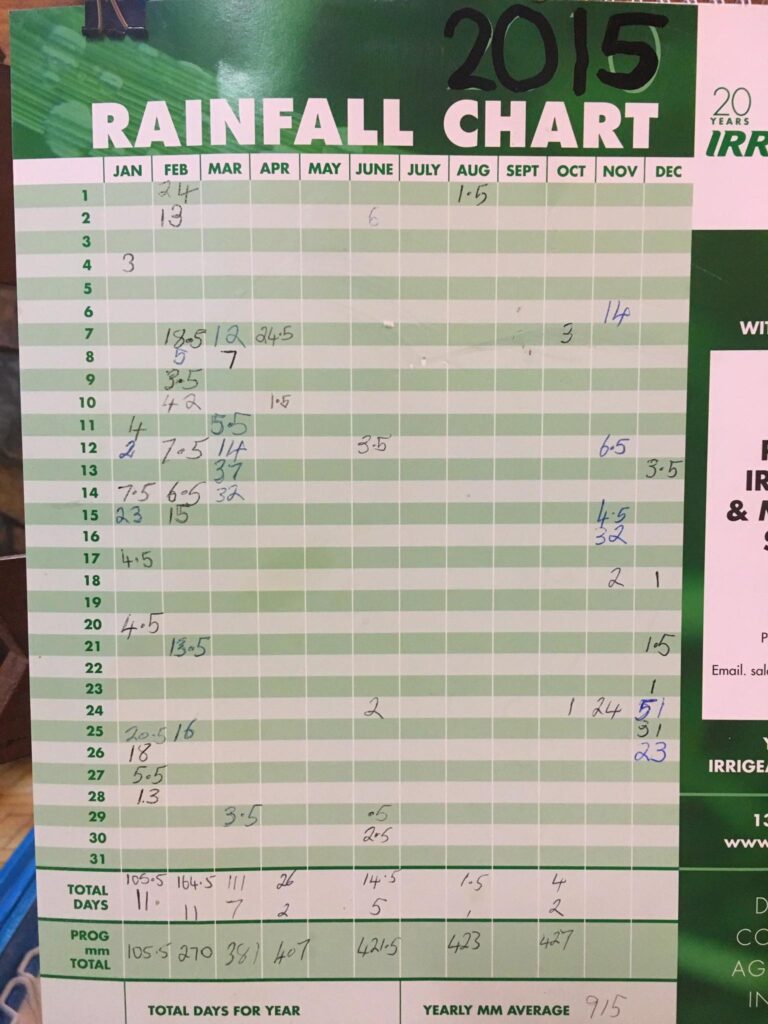 2015
RAINFALL CHART
20
YEARS
IRR
JAN FEB MAR APR MAY JUNE JULY AUG SEPT OCT NOV DEC
1 24 1.5
2 13 6
3
4 3
5
6 14
7 18.5 12 24.5 3
8 5 7
9 3.5
10 42 1.5
11 4 5.5
12 2 7.5 14 3.5 6.5
13 37 3.5
14 7.5 6.5 32
15 23 15 4.5
16 32
17 4.5
18 2 1
19
20 4.5
21 13.5 1.5
22
23 1
24 2 1 24 51
25 20.5 16 31
26 18 23
27 5.5
28 13
29 3.5 .5
30 2.5
31
TOTAL 105.5 164.5 111 26 14.5 1.5 4
DAYS 11. 11 7 2 5 , 2
PROG
mm 105.5 270 381 407 421.5 423 427
TOTAL
TOTAL DAYS FOR YEAR YEARLY MM AVERAGE 915
WIT
IR
& M
S
P
Email. sal
Y
IRRIGEA
13
www.
D
CO
AG
IN